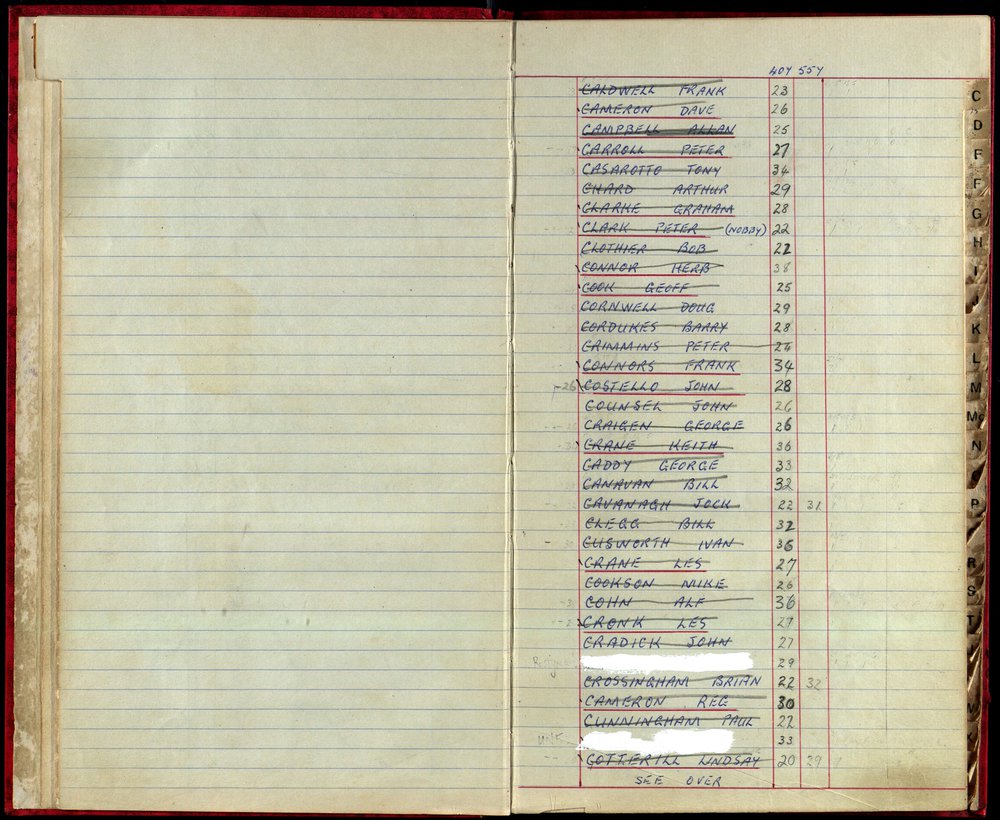 40Y 55Y
CALDWELL FRANK 23
CAMERON DAVE 26
CAMPBELL ALLAN 25
CARROLL PETER 27
CASAROTTO TONY 34
CHARD ARTHUR 29
CLARKE GRAHAM 28
CLARK PETER (NOBBY) 22
CLOTHIER BOB 22
CONNOR HERB 38
COOK GEOFF 25
CORNWELL DOUG 29
CORDUKES BARRY 28
CRIMMINS PETER 24
CONNORS FRANK 34
-26 COSTELLO JOHN 28
COUNSEL JOHN 26
CRAIGEN GEORGE 26
CRANE KEITH 36
CADDY GEORGE 33
CANAVAN BILL 32
CAVANAGH JOCK 22 31
CLEGG BILL 32
CUSWORTH IVAN 36
CRANE LES 27
COOKSON MIKE 26
COHN ALF 36
CRONK LES 27
CRADICK JOHN 27
29
CROSSINGHAM BRIAN 22 32
CAMERON REG 30
CUNNINGHAM PAUL 22
33
COTTERILL LINDSAY 20 29
SEE OVER
C
D
F
F
G
H
I
J
K
L
M
Mc
N
P
R
S
T